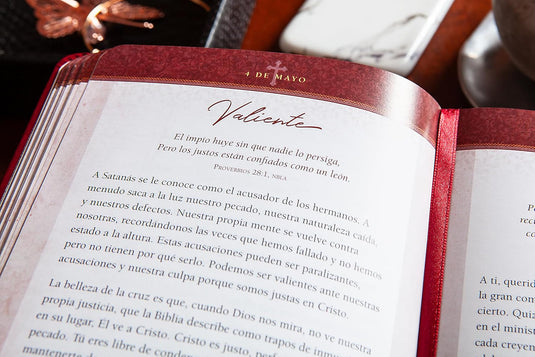 4 DE MAYO
Valiente
El impío huye sin que nadie lo persiga,
Pero los justos están confiados como un león.
PROVERBIOS 28:1, NBLA
A Satanás se le conoce como el acusador de los hermanos. A
menudo saca a la luz nuestro pecado, nuestra naturaleza caída,
y nuestros defectos. Nuestra propia mente se vuelve contra
nosotras, recordándonos las veces que hemos fallado y no hemos
estado a la altura. Estas acusaciones pueden ser paralizantes,
pero no tienen por qué serlo. Podemos ser valientes ante nuestras
acusaciones y nuestra culpa porque somos justas en Cristo.
La belleza de la cruz es que, cuando Dios nos mira, no ve nuestra
propia justicia, que la Biblia describe como trapos de inmundicia
en su lugar, Él ve a Cristo. Cristo es justo, perfecto
pecado. Tú eres libre de conden
mantenerte
A ti, querid
la gran com
cierto. Quiz
en el minist
cada creyen